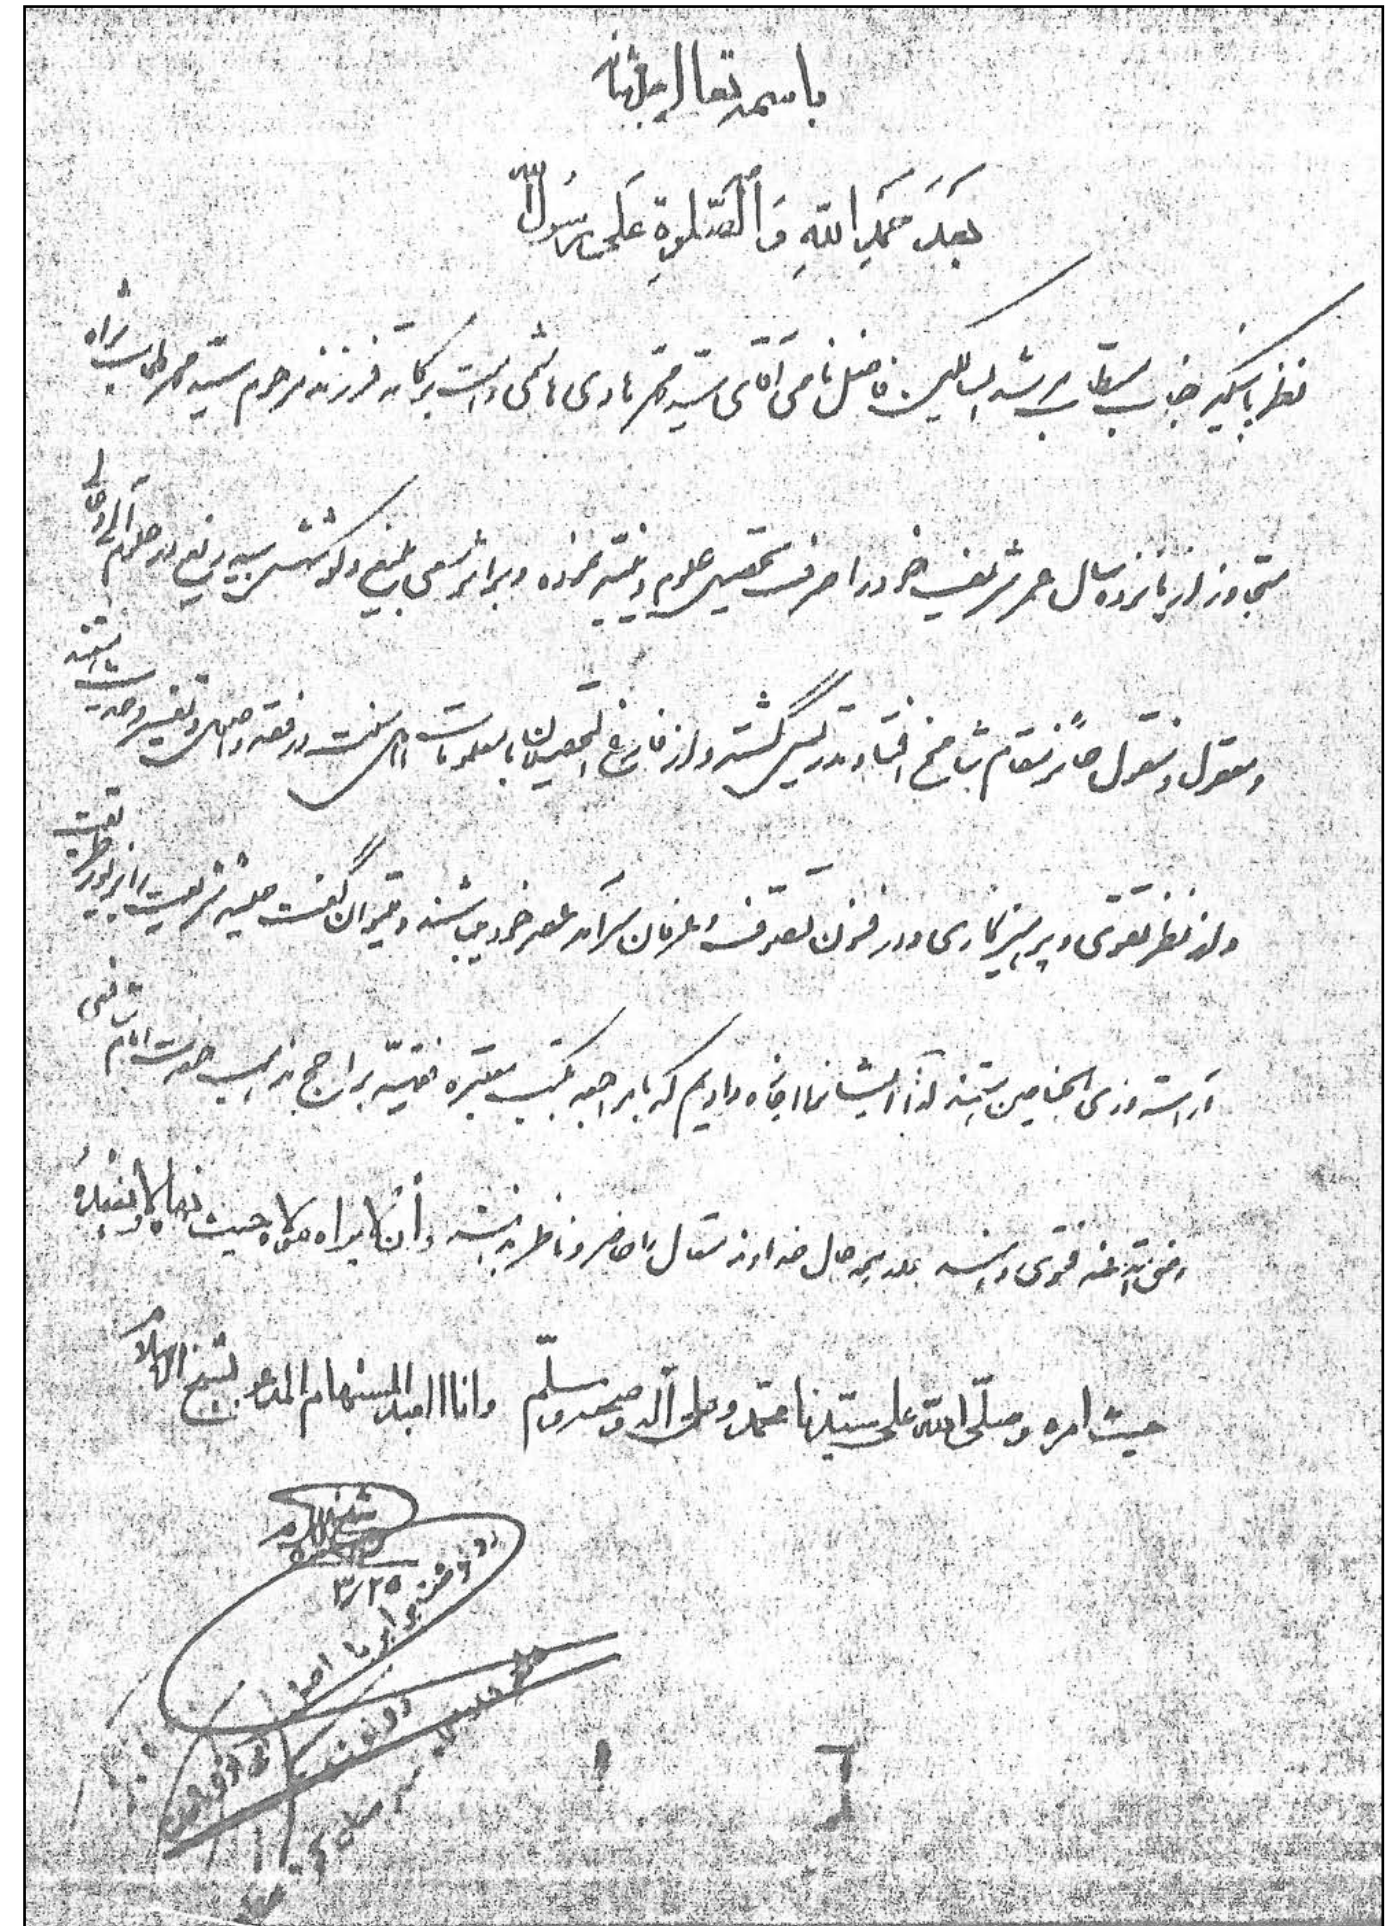 باسمه تعالی جل شأنه
بَعدَ حَمدِ اللهِ وَالصَّلوةِ عَلی رَسُولِ الله
نظر باینکه جناب مستطاب مرشد السالکین فاضل نامی آقای سید محمد هادی هاشمی دامت برکاته فرزند مرحوم سید محمد طاب ثراه
متجاوز از پانزده سال عمر شریف خود را صرف تحصیل علوم دینیه نموده و بر اثر سعی بلیغ و کوشش بی‌دریغ در علوم آلی و عالی
و معقول و منقول حائز مقام شامخ افتاء و تدریس گشته و از فارغ التحصیلان با معلومات اهل سنت در فقه و اصول و تفسیر و حدیث هستند
و از نظر تقوی و پرهیزکاری و در فنون تصوف و عرفان سرآمد عصر خود می‌باشند و میتوان گفت حلیه شریعت را بزیور طریقت
آراسته و ذی الجناحین هستند لذا ایشانرا اجازه دادیم که با مراجعه بکتب معتبره فقهیه براجح مذهب حضرت امام شافعی
رضی الله عنه فتوی دهند در همه حال خداوند متعال را حاضر و ناظر بدانند و أن لا یراه مولاه حیث نهاه ولا یفقده
حیث امره وصلّی الله علی سیّدنا محمّد وعلی آله وصحبه وسلّم وانا العبد المستهام المدعو بشیخ الاسلام
شیخ الاسلام
۳/۲۵